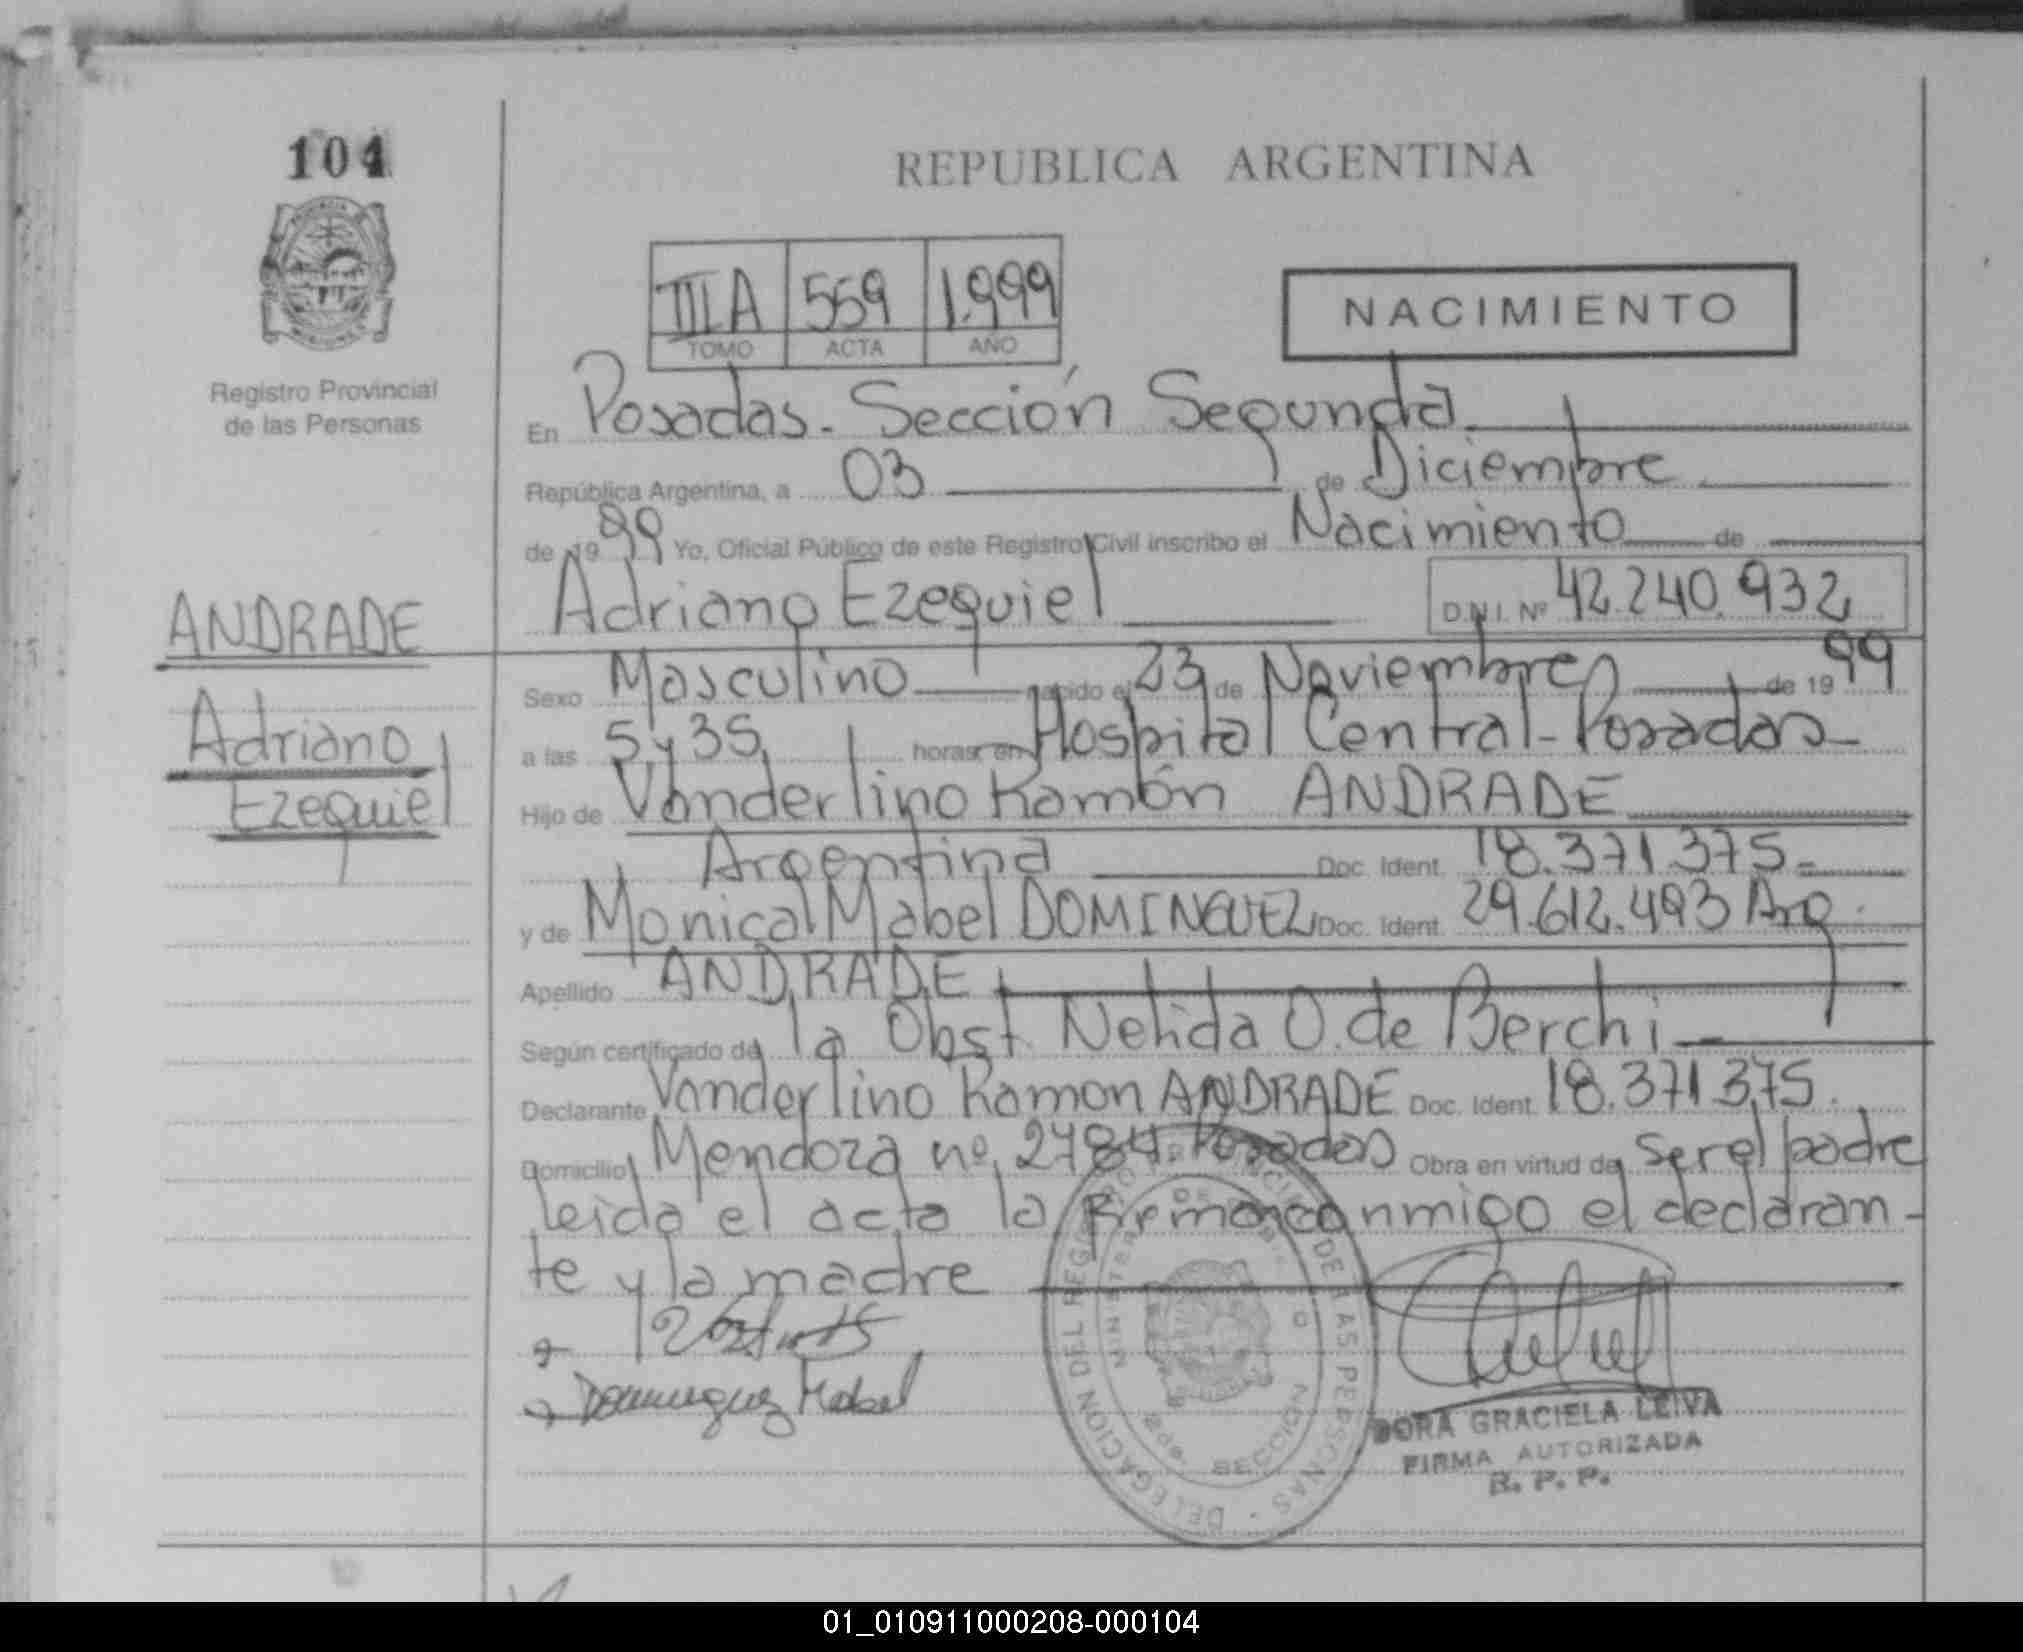 104
REPUBLICA ARGENTINA
III A 559 1.999
TOMO ACTA AÑO
NACIMIENTO
Registro Provincial
de las Personas
En Posadas. Sección Segunda
República Argentina, a 03 de Diciembre
de 1999 Yo, Oficial Público de este Registro Civil inscribo el Nacimiento de
Adriano Ezequiel D.N.I. Nº 42.240.932
ANDRADE
Adriano
Ezequiel
Sexo Masculino nacido el 23 de Noviembre de 1999
a las 5 y 35 horas en Hospital Central - Posadas
Hijo de Vanderlino Ramón ANDRADE
Argentina Doc. Ident. 18.371.375.
y de Monica Mabel DOMINGUEZ Doc. Ident. 29.612.493 Arg.
Apellido ANDRADE
Según certificado de la Obst. Nelida O. de Berchi
Declarante Vanderlino Ramon ANDRADE Doc. Ident. 18.371.375.
Domicilio Mendoza nº 2784. Posadas Obra en virtud de ser el padre
leida el acta la firman conmigo el declaran-
te y la madre
Dominguez Mabel
DELEGACION DEL REGISTRO PROVINCIAL DE LAS PERSONAS
MINISTERIO DE
2da. SECCION
DORA GRACIELA LEIVA
FIRMA AUTORIZADA
R. P. P.
01_010911000208-000104